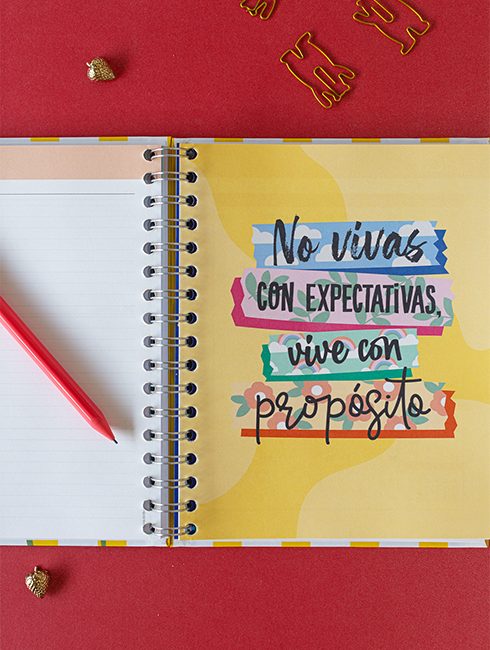 No vivas
CON EXPECTATIVAS,
vive con
propósito